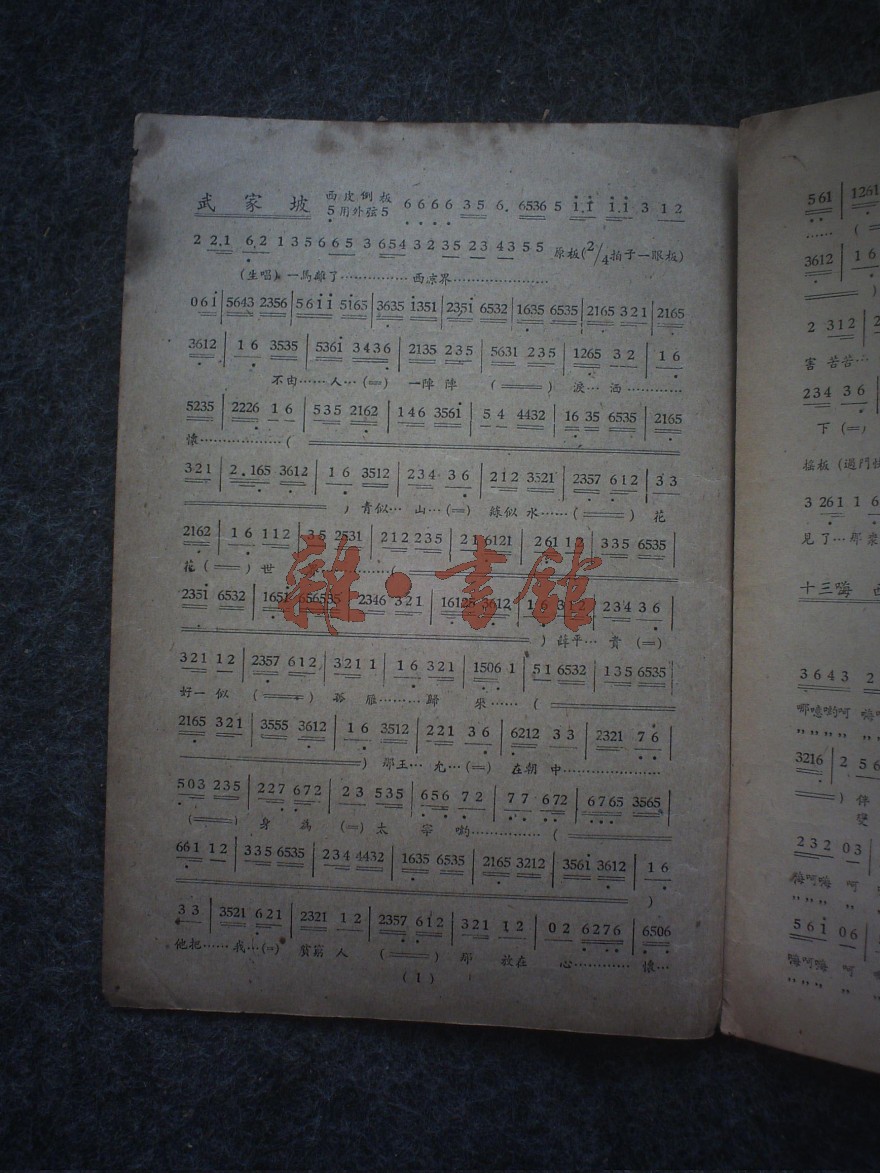 武家坡 西皮倒板
5用外弦5 6 6 6 6 3 5 6. 6536 5 i.i i.i 3 1 2
2 2.1 6.2 1 3 5 6 6 5 3 654 3 2 3 5 2 3 4 3 5 5 原板(2/4拍子一眼板)
(生唱) 一馬離了……………西凉界…………………
0 6 i | 5643 2356 | 5 6 i i 5165 | 3635 i351 | 2351 6532 | 1635 6535 | 2165 3 2 1 | 2165
3612 | 1 6 3535 | 5361 3 4 3 6 | 2135 2 3 5 | 5631 2 3 5 | 1265 3 2 | 1 6
不由……人…(=) 一陣陣 (===) 淚…洒…………
5235 | 2226 1 6 | 5 3 5 2162 | 1 4 6 3561 | 5 4 4432 | 16 35 6535 | 2165
懷………………(
3 2 1 | 2.165 3612 | 1 6 3512 | 2 3 4 3 6 | 2 1 2 3521 | 2357 6 1 2 | 3 3
) 青似…山…(=) 綠似水……(===) 花
2162 | 1 6 1 1 2 | 3 5 2531 | 2 1 2 2 3 5 | 2 1 6121 | 2 6 1 1 2 | 3 3 5 6535
花(===)世 ……………(
雜·書館
2351 6532 | 1651 656535 | 2346 3 2 1 | 16123 3612 | 1 6 3 1 2 | 2 3 4 3 6
) 薛平…貴 (=)
3 2 1 1 2 | 2357 6 1 2 | 3 2 1 1 | 1 6 3 2 1 | 1506 1 | 5 1 6532 | 1 3 5 6535
好一似 (===) 孤雁………歸 來…… (
2165 3 2 1 | 3555 3612 | 1 6 3512 | 2 2 1 3 6 | 6212 3 3 | 2321 7 6
) 那王…允…(=) 在朝中…………………
5 0 3 2 3 5 | 2 2 7 6 7 2 | 2 3 5 3 5 | 6 5 6 7 2 | 7 7 6 72 | 6765 3565
(===) 身為 (=)太宰喲……………(
6 6 1 1 2 | 3 3 5 6535 | 2 3 4 4432 | 1635 6535 | 2165 3212 | 3561 3612 | 1 6
)
3 3 | 3521 6 2 1 | 2321 1 2 | 2357 6 1 2 | 3 2 1 1 2 | 0 2 6 2 7 6 | 6506
他把……我…(=) 貧窮人 (===) 那放在心…………懷…
(1)
561 | 1261
…… (
3612 | 1 6
)
2 3 1 2 | 2
害苦苦…
2 3 4 3 6
下 (=)
搖板(過門
3 261 1 6
見了…那
十三嗨
3 6 4 3 2
哪噫喲呵 嗨
3216 | 2 5 6
) 伴
變
2 3 2 0 3
嗨呵嗨 呵
5 6 i 0 6
嗨呵嗨 呵